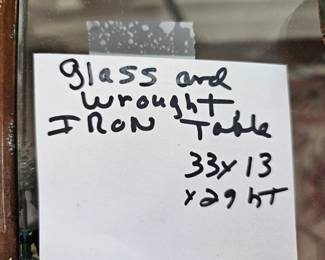 glass and
wrought
IRON Table
33x13
x29 hT